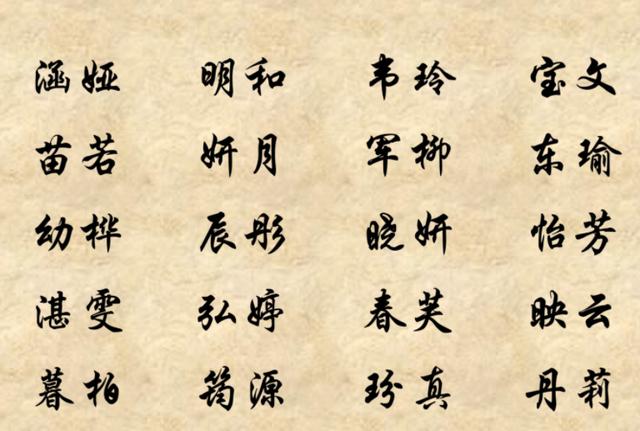 涵娅 明和 韦玲 宝文
苗若 妍月 军柳 东瑜
幼桦 辰彤 晓妍 怡芳
湛雯 弘婷 春芙 映云
暮柏 筠源 玢真 丹莉